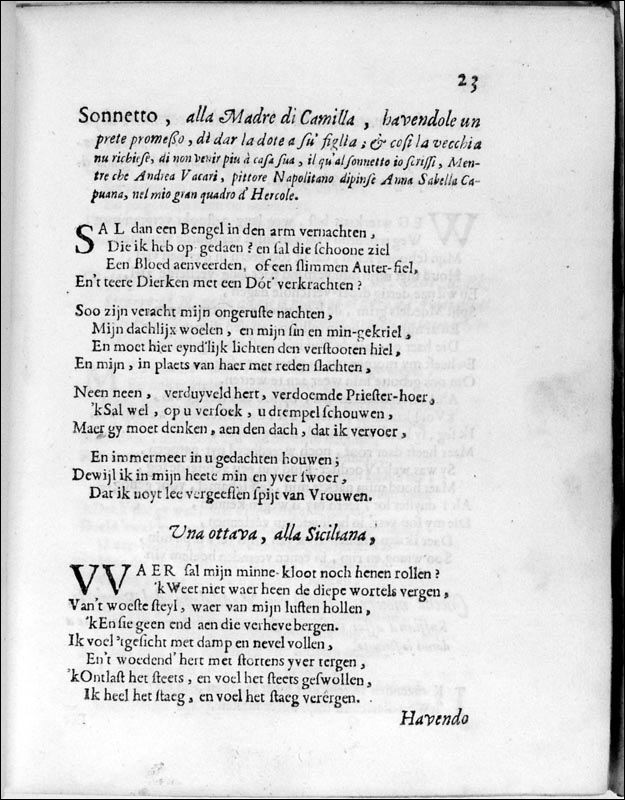 23
Sonnetto, alla Madre di Camilla, havendole un
prete promeßo, di dar la dote a su' figlia; & cosi la vecchia
nu richiese, di non venir piu à casa sua, il qu'al sonnetto io scrissi, Men-
tre che Andrea Vacari, pittore Napolitano dipinse Anna Sabella Ca-
puana, nel mio gran quadro d' Hercole.
SAL dan een Bengel in den arm vernachten,
Die ik heb op gedaen? en sal die schoone ziel
Een Bloed aenveerden, of een slimmen Auter-fiel,
En't teere Dierken met een Dót' verkrachten?
Soo zijn veracht mijn ongeruste nachten,
Mijn dachlijx woelen, en mijn sin en min-gekriel,
En moet hier eynd'lijk lichten den verstooten hiel,
En mijn, in plaets van haer met reden slachten,
Neen neen, verduyveld hert, verdoemde Priester-hoer,
'kSal wel, op u versoek, u drempel schouwen,
Maer gy moet denken, aen den dach, dat ik vervoer,
En immermeer in u gedachten houwen;
Dewijl ik in mijn heete min en yver swoer,
Dat ik noyt lee vergeeflen spijt van Vrouwen.
Una ottava, alla Siciliana,
VVAER sal mijn minne-kloot noch henen rollen?
'kWeet niet waer heen de diepe wortels vergen,
Van't woeste steyl, waer van mijn lusten hollen,
'kEn sie geen end aen die verheve bergen.
Ik voel 'tgesicht met damp en nevel vollen,
En't woedend' hert met stortens yver tergen,
'kOntlast het steets, en voel het steets geswollen,
Ik heel het staeg, en voel het staeg verérgen.
Havendo